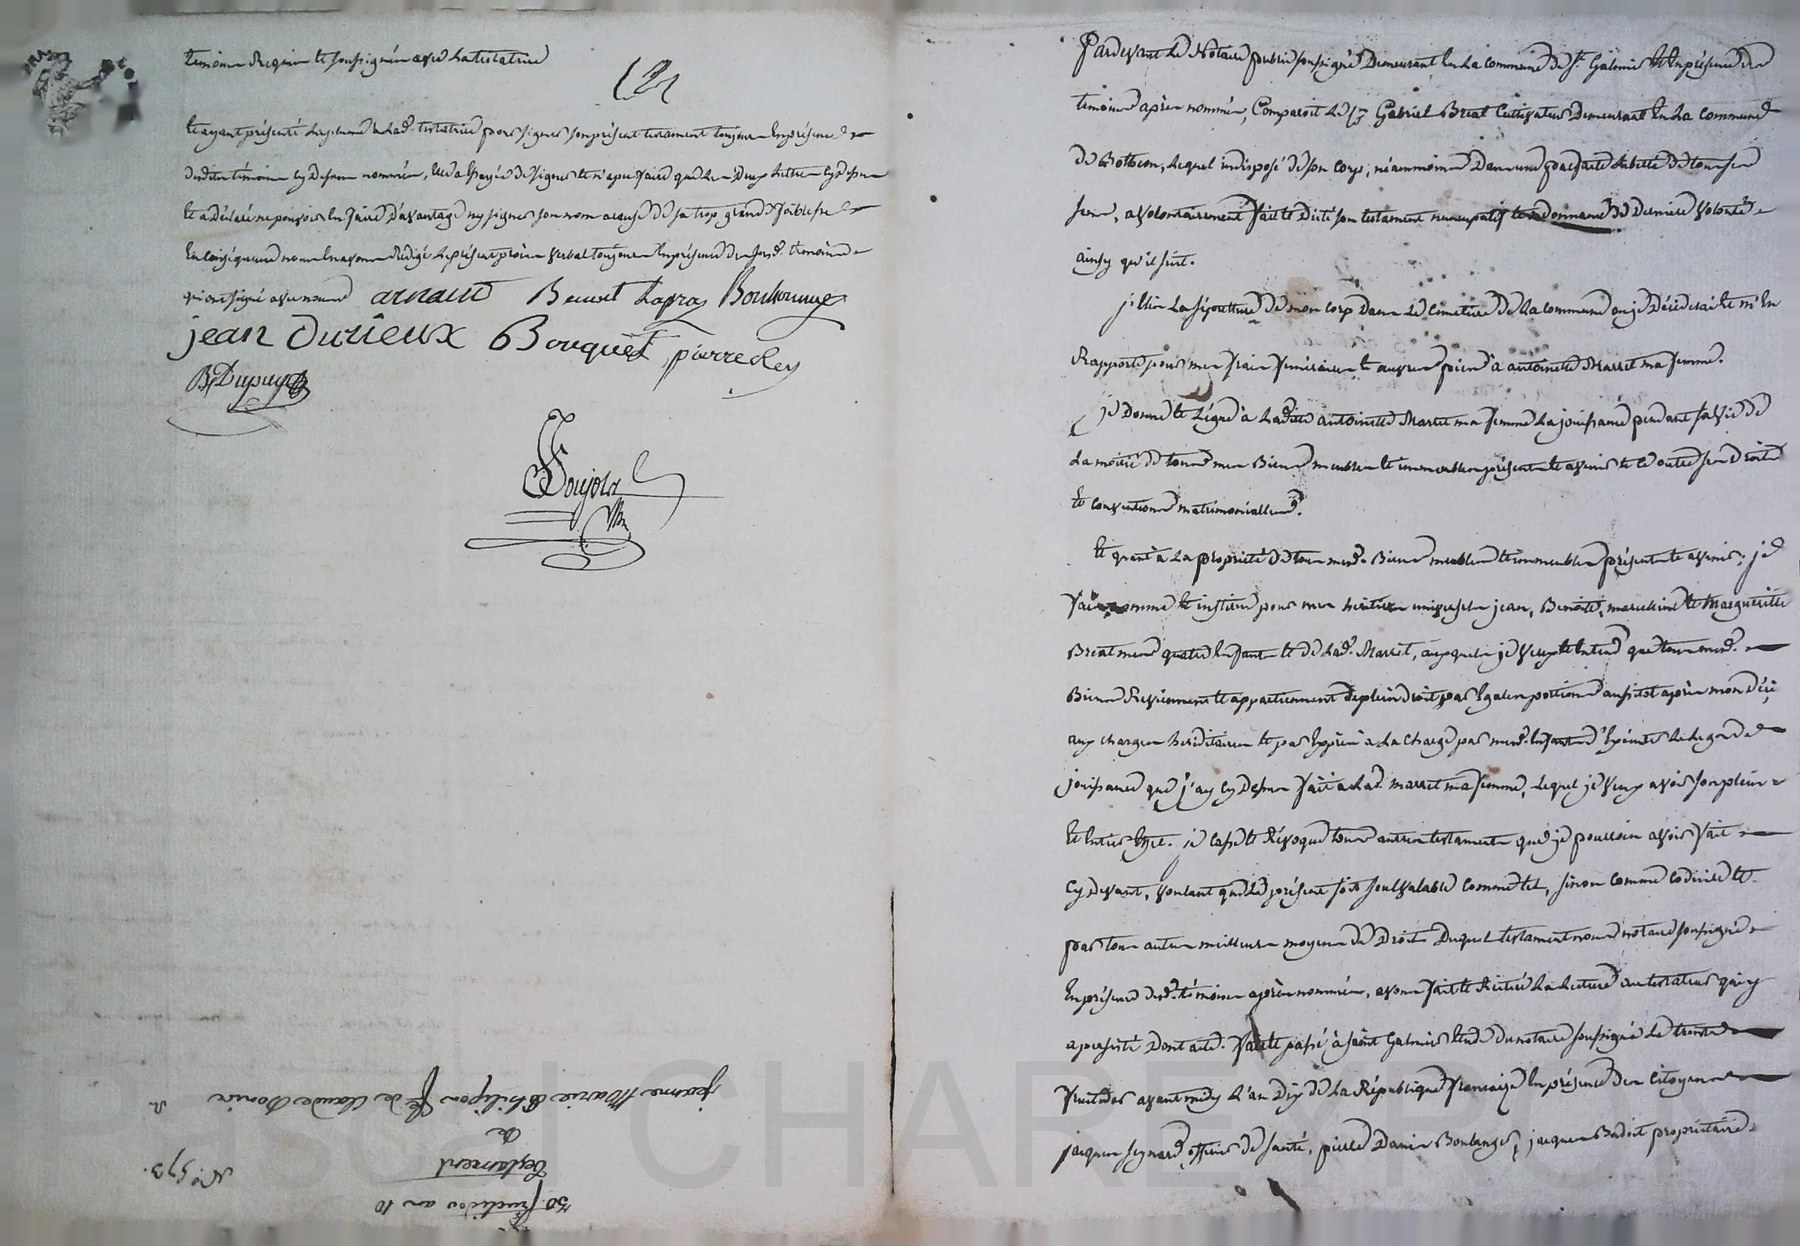 temoins Requis et soussignés avec La testatrice
et ayant présenté la plume à Lade. testatrice pour signer son présent testament toujours En présence
desdits témoins cy Dessus nommés, Elle a Essayée de signer et n'a pu faire que Les Deux Lettres cy dessus
et a déclaré ne pouvoir En faire D'avantage ny signer son nom acause de sa trop grande foiblesse
En conséquence nous En avons Rédigé Le présent procès verbal toujours En présence des susd. témoins
qui ont signé avec nous arnaud Benoit Lapra Bonhomme
jean Durieux Bouquet pierre Rey
B. Dupuy
Pujola
Jeanne Marie Philipon fe. de Claude Bonir
de
Testament
N.o 573.
30 fructidor an 10
Pardevant Le Notaire public soussigné Demeurant En La commune de St. Galmier et En présence des
temoins après nommés, Comparoit Le Cn. Gabriel Breat Cultivateur Demeurant En La commune
de Botheon, Lequel indisposé de son Corps, néanmoins Dans une parfaite Liberté de tous ses
sens, a volontairement fait et Dicté son testament nuncupatif et ordonnance de Derniere volonté
ainsy qu'il suit.
j'Elis La sépulture de mon corps Dans Le Cimetiere de La commune ou je Décéderai et m'En
Rapporte pour mes frais funéraires et œuvres pies à antoinette Marret ma femme.
je Donne et Légue à Ladite antoinette Marret ma femme La jouissance pendant sa vie de
La moitié de tous mes Biens meubles et immeubles présents et avenir et ce outre ses Droits
et conventions matrimonialles.
et quant à La propriété de tous mesd. Biens meubles et immeubles présents et avenir; je
fais, nomme et institue pour mes héritiers universels jean, Benoite, marcelline et Marguerite
Breat mes quatre Enfants et de Lad. Marret, auxquels je veux et Entend que tous mesd.
Biens Reviennent et appartiennent de plein Droit par Egales portions aussitot après mon décè,
aux charges héréditaires et par Exprès à La charge par mesd. Enfants d'Exécuter Le Legs de
jouissance que j'ay cy Dessus fait à Lad. marret ma femme, Lequel je veux avoir son plein
et Entier Effet. je casse et Révoque tous autres testaments que je pourrois avoir fait
Cy devant, voulant que Le présent soit seul valable comme tel, sinon comme codicile et
par tous autres meilleurs moyens de Droit. Duquel testament nous notaire soussigné
En présence desd. témoins après nommés, avons fait et Réitéré La Lecture au testateur qui y
a persisté Dont acte. fait et passé à Saint Galmier Etude du notaire soussigné Le trente
fructidor avant midy L'an Dix de La République française En présence des Citoyens
jacques seynard officier de santé, pierre Danier Boulanger, jacques Badoit propriétaire